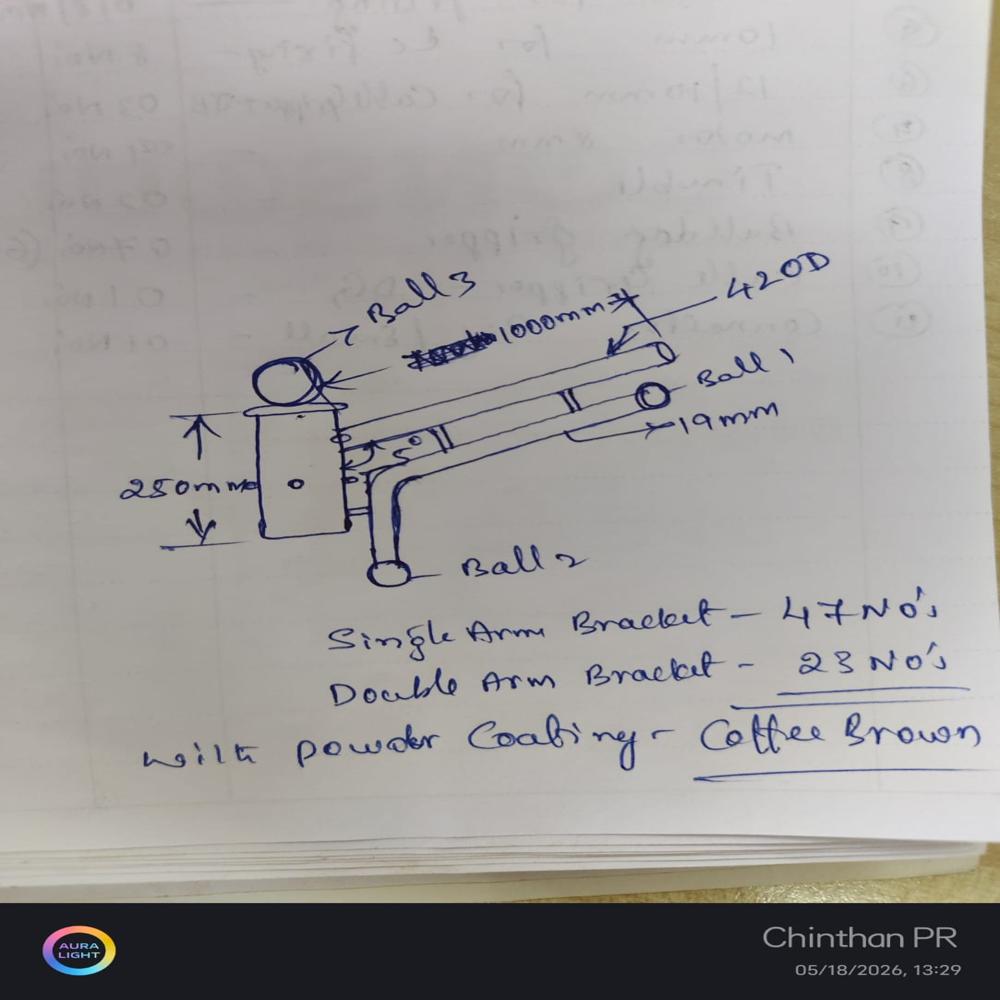 Ball 3
1000mm
42OD
Ball 1
19mm
5°
250mm
Ball 2
Single Arm Bracket - 47 No's
Double Arm Bracket - 23 No's
With powder Coating - Coffee Brown
AURA
LIGHT
Chinthan PR
05/18/2026, 13:29